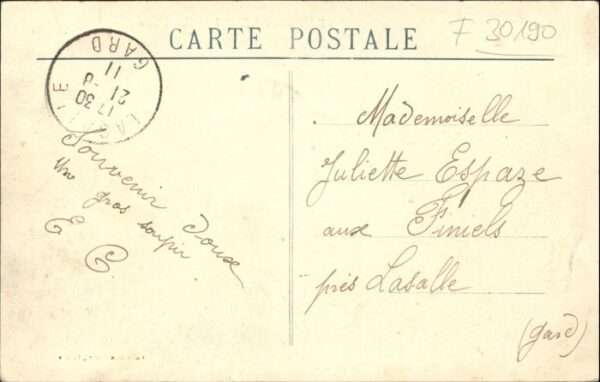 CARTE POSTALE
F 30190
LASALLE
GARD
17 30
21 - 8
11
Souvenir doux
Un gros soupir
E C
Mademoiselle
Juliette Espaze
aux Finiels
près Lasalle
(Gard)